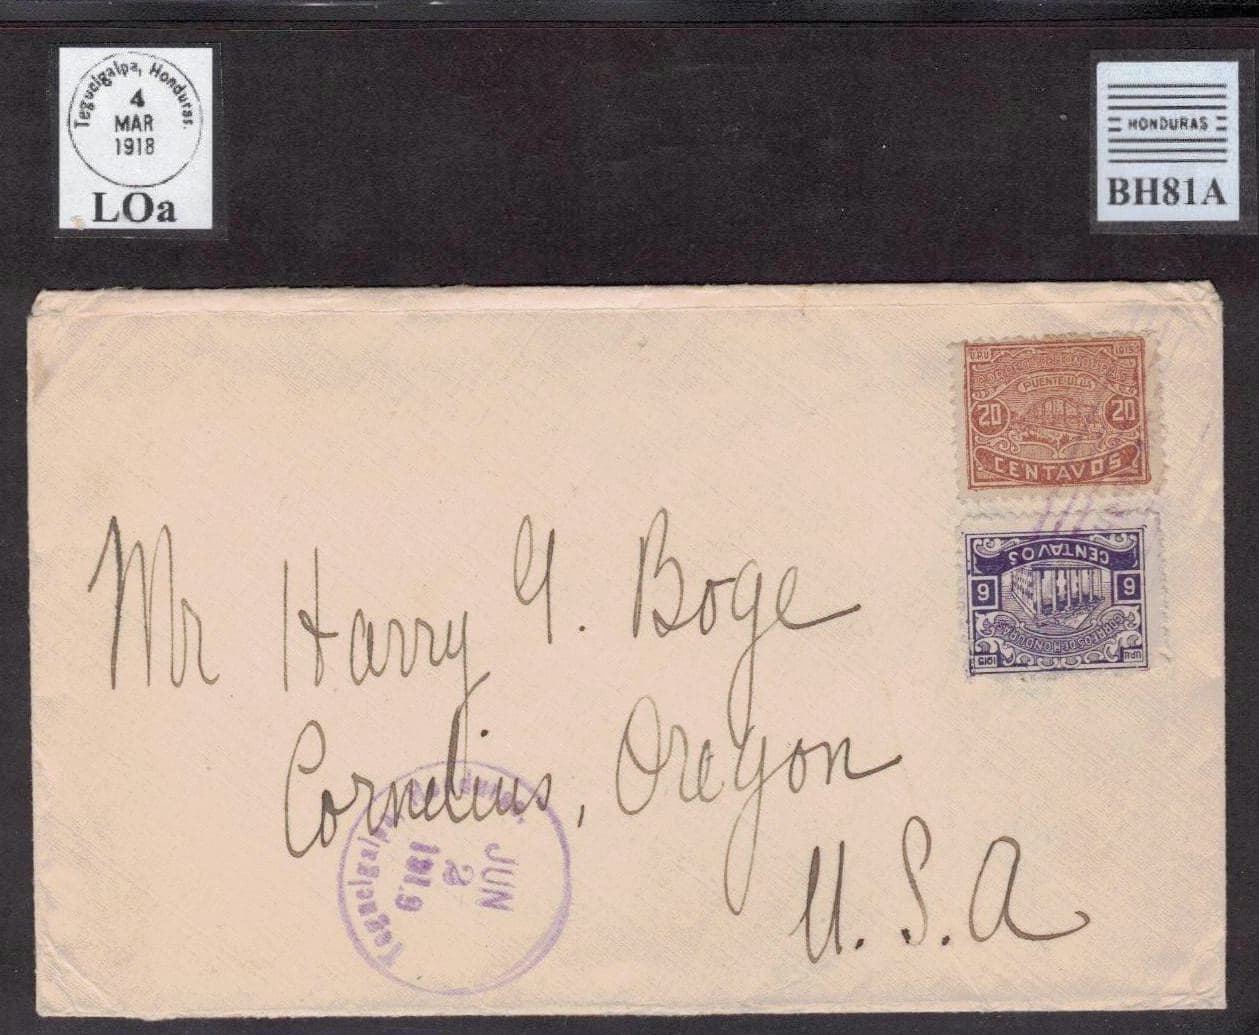 Tegucigalpa, Honduras.
4
MAR
1918
LOa
HONDURAS
BH81A
U.P.U 1915
CORREOS DE HONDURAS
PUENTE ULUA
20 20
CENTAVOS
CENTAVOS
6 6
CORREOS DE HONDURAS
UPU 1915
Mr Harry G. Boge
Cornelius, Oregon
U.S.A
Tegucigalpa, Honduras.
JUN
2
1919